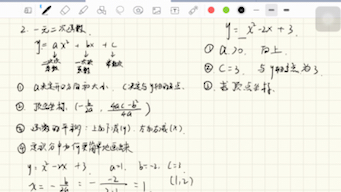 2. 一元二次函数.
y = ax² + bx + c
二次项 一次项 常数项
系数 系数
① a决定开口方向和大小. C决定与y轴的交点.
② 顶点坐标. (-b/2a, 4ac-b²/4a)
③ 函数的平移: 上加下减(y). 左加右减(x)
④
y = x² - 2x + 3. a=1. b=-2. c=3
x = -b/2a = - -2/2·1 = 1 (1,2)
y = x² - 2x + 3.
① a>0. 向上.
② C=3. 与y轴交点为3
③ 求顶点坐标.